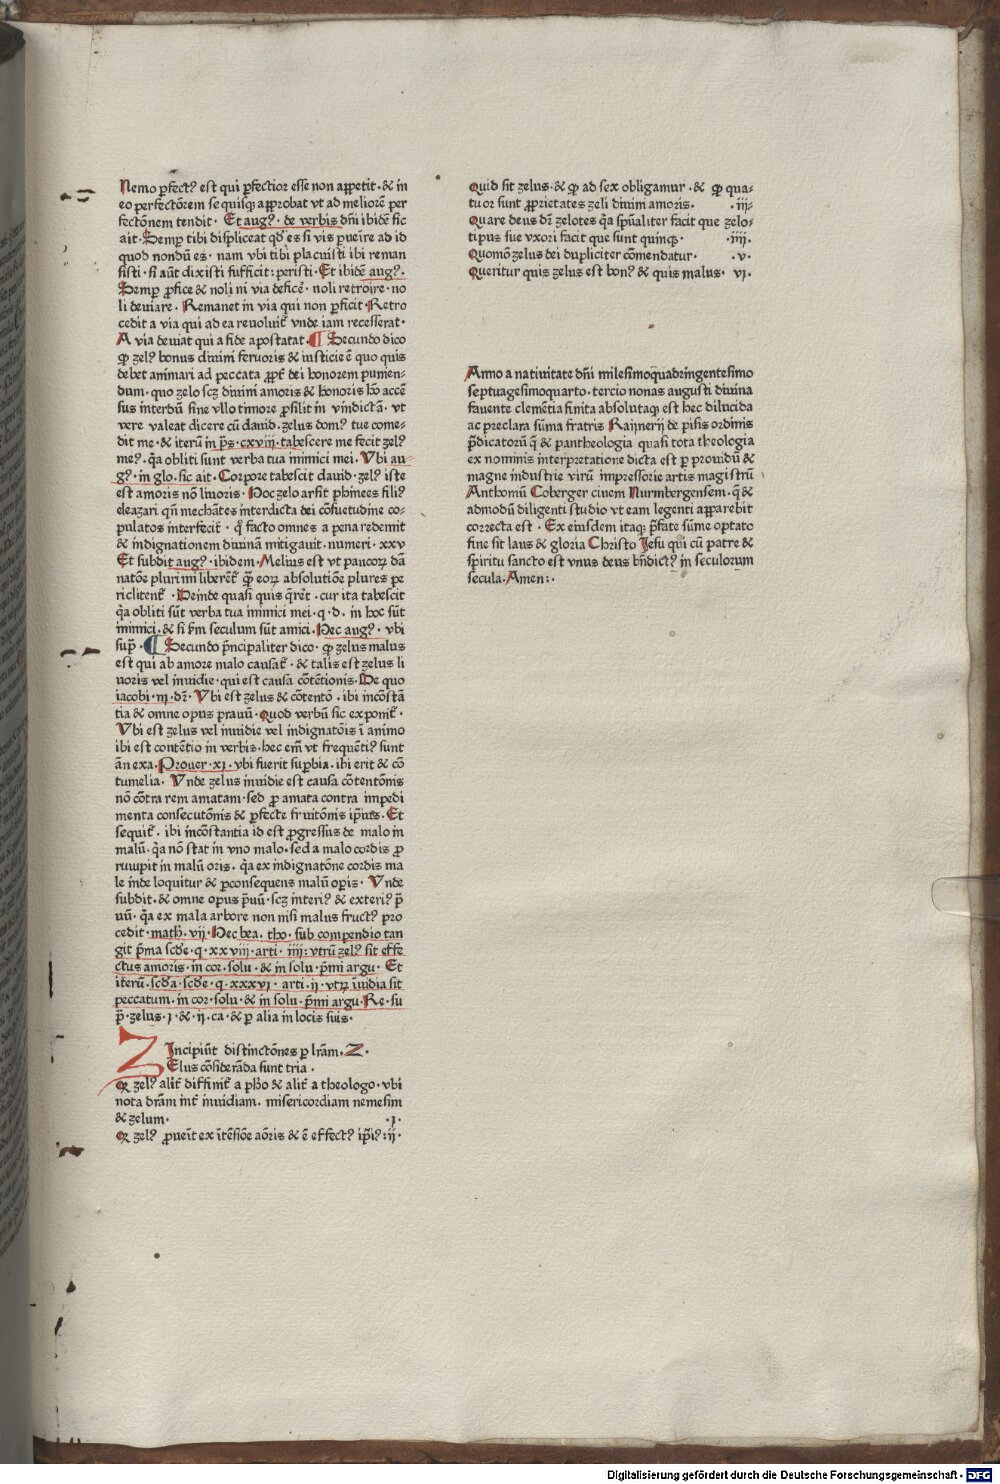 Nemo ꝑfectꝰ est qui ꝑfectior esse non appetit · & in
eo ꝑfectōrem se quisqꝫ approbat vt ad meliorē per
fectōnem tendit · Et augꝰ · de verbis dn̄i ibidē sic
ait · Semꝑ tibi displiceat qd̓ es si vis ꝑueīre ad id
quod nondū es · nam vbi tibi placuisti ibi reman
sisti · si aūt dixisti sufficit : peristi · Et ibidē augꝰ ·
Semꝑ ꝓfice & noli ni via deficē · noli retroire · no
li deuiare · Remanet in via qui non ꝓficit · Retro
cedit a via qui ad ea reuoluit᷑ vnde iam recesserat ·
A via deuiat qui a fide apostatat · ¶ Secundo dico
ꝙ zelꝰ bonus diuini feruoris & iusticie ē quo quis
debet animari ad peccata ꝓpt̄ dei honorem punien-
dum · quo zelo scꝫ diuini amoris & honoris hō accē
sus interdū sine vllo timore ꝓsilit in vindictā · vt
vere valeat dicere cū dauid · zelus domꝰ tue come-
dit me · & iterū in p̄s · cxviij · tabescere me fecit zelꝰ
meꝰ · q̄a obliti sunt verba tua inimici mei · Vbi au-
gꝰ · in glo · sic ait · Corpore tabescit dauid · zelꝰ iste
est amoris nō liuoris · Hoc zelo arsit phinees filiꝰ
eleazari qn̄ mechātes interdicta dei cōsuetudine co-
pulatos interfecit · qd̓ facto omnes a pena redemit
& indignationem diuinā mitigauit · numeri · xxv
Et subdit augꝰ · ibidem · Melius est vt paucoꝝ dā
natōe plurimi liberēt᷑ q̄ꝫ eoꝝ absolutiōe plures pe
riclitent᷑ · Deinde quasi quis q̄reret · cur ita tabescit
q̄a obliti sūt verba tua inimici mei · q · d · in hoc sūt
inimici · & si ẜm seculum sūt amici · Hec augꝰ · vbi
sup̄ · ¶ Secundo p̄ncipaliter dico · ꝙ zelus malus
est qui ab amore malo causat᷑ · & talis est zelus li
uoris vel inuidie · qui est causa cōtētionis · De quo
iacobi · iij · dr̄ · Vbi est zelus & cōtentō · ibi incōstā
tia & omne opus prauū · Quod verbū sic exponit᷑ ·
Vbi est zelus vel inuidie vel indignatōis ī animo
ibi est contētio in verbis · hec em̄ vt frequēti᷑ sunt
ān exa · Prouer · xj · vbi fuerit suꝑbia · ibi erit & cō
tumelia · Vnde zelus inuidie est causa cōtentōnis
nō cōtra rem amatam · sed ꝓ amata contra impedi
menta consecutōnis & ꝑfecte fruitōnis ip̄ius · Et
sequit᷑ · ibi incōstantia id est ꝓgressus de malo in
malū · q̄a nō stat in vno malo · sed a malo cordis ꝓ
rumpit in malū oris · q̄a ex indignatōne cordis ma
le inde loquitur & ꝑconsequens malū oꝑis · Vnde
subdit · & omne opus p̄uū · scꝫ interiꝰ & exteriꝰ p̄
uū · q̄a ex mala arbore non nisi malus fructꝰ pro
cedit · math · vij · Hec bea · tho · sub compendio tan
git p̄ma scd̓e · q · xxviij · arti · iiij : vtrū zelꝰ sit effe
ctus amoris · in cor · solu · & in solu · p̄mi argu · Et
iterū · scd̓a · scd̓e · q · xxxvi · arti · ij · vtꝝ īuidia sit
peccatum · in cor · solu · & in solu · p̄mi argu · Re · su
p̄ · zelus · i · & · ij · ca · & ꝑ alia in locis suis ·
Incipiūt distinctōnes ꝑ lr̄am · Z ·
ZElus cōsiderāda sunt tria ·
Qꝫ zelꝰ alit᷑ diffinit᷑ a pho & alit᷑ a theologo · vbi
nota dr̄am int᷑ inuidiam · misericordiam nemesim
& zelum · ·i·
Qꝫ zelꝰ ꝓuenit ex ītēsiōe aōris & ē effectꝰ ip̄iꝰ · ij ·
Quid sit zelus · & ꝙ ad sex obligamur · & ꝙ qua-
tuor sunt ꝓprietates zeli diuini amoris · ·iij·
Quare deus dr̄ zelotes q̄a sp̄ualiter facit que zelo-
tipus sue vxori facit que sunt quinqꝫ · ·iiij·
Quomō zelus dei dupliciter cōmendatur · ·v·
Queritur quis zelus est bonꝰ & quis malus · vi ·
Anno a natiuitate dn̄i milesimoquadringentesimo
septuagesimoquarto · tercio nonas augusti diuina
fauente clemētia finita absolutaqꝫ est hec dilucida
ac preclara sūma fratris Raijnerij de pisis ordinis
p̄dicatorū q̄ & pantheologia quasi tota theologia
ex nominis interpretatione dicta est ꝑ prouidū &
magne industrie virū impressorie artis magistrū
Anthoniū Coberger ciuem Nurmbergensem · q̄ &
admodū diligenti studio vt eam legenti apparebit
correcta est · Ex eiusdem itaqꝫ p̄fate sūme optato
fine sit laus & gloria Christo Jesu qui cū patre &
spiritu sancto est vnus deus bn̄dictꝰ in seculorum
secula · Amen : ·
Digitalisierung gefördert durch die Deutsche Forschungsgemeinschaft - DFG